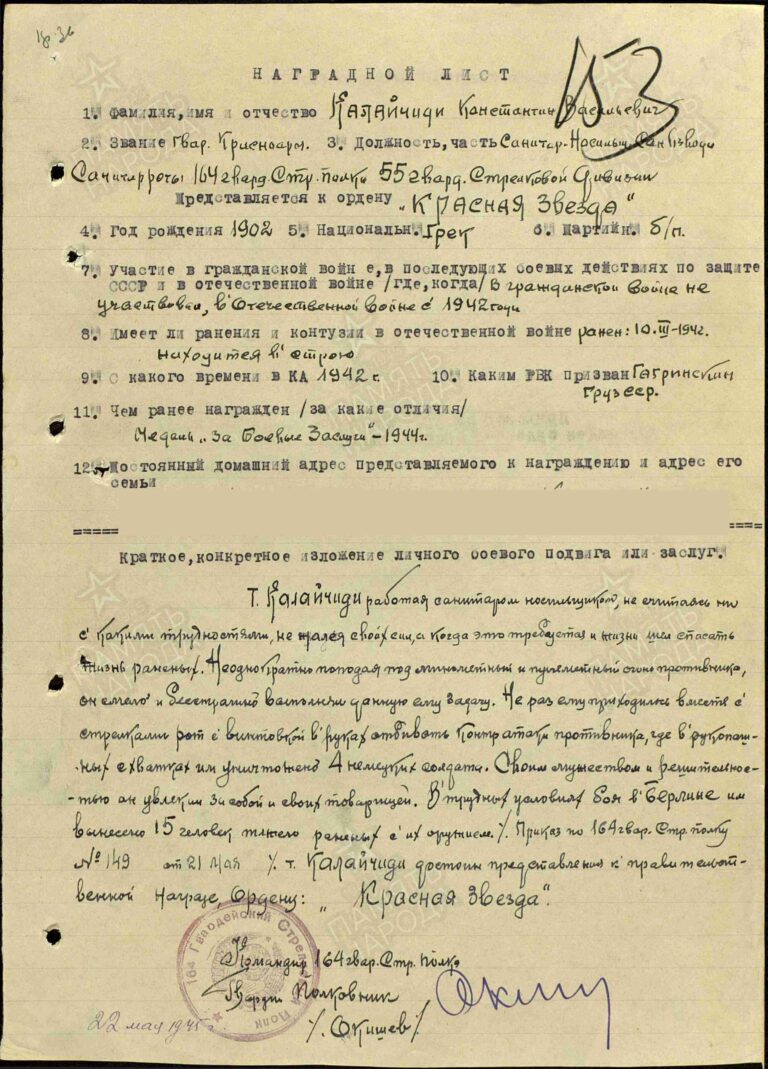 153
НАГРАДНОЙ ЛИСТ
1. Фамилия, имя и отчество Калайчиди Константин Васильевич
2. Звание Гвар. Красноарм. 3. Должность, часть Санитар-Носильщ. Сан взвода
Санитарроты 164 гвард. Стр. полка 55 гвард. Стрелковой Дивизии
Представляется к ордену „КРАСНАЯ Звезда"
4. Год рождения 1902 5. Национальн. Грек 6. Партийн. б/п.
7. Участие в гражданской войн е, в последующих боевых действиях по защите
СССР и в отечественной войне /где, когда/ В гражданской войне не
участвовал, в Отечественной войне с 1942 года
8. Имеет ли ранения и контузии в отечественной войне ранен: 10.III-1942г.
находится в строю
9. С какого времени в КА 1942 г. 10. Каким РВК призван Гагринским
Груз ССР.
11. Чем ранее награжден /за какие отличия/
Медаль „За Боевые Заслуги" - 1944г.
12. Достоянный домашний адрес представляемого к награждению и адрес его
семьи
===== ====
Краткое, конкретное изложение личного боевого подвига или заслуг.
Т. Калайчиди работая санитаром носильщиком, не считаясь ни
с какими трудностями, не жалея своих сил, а когда это требуется и жизни шел спасать
жизнь раненых. Неоднократно попадая под минометный и пулеметный огонь противника,
он смело и бесстрашно выполнял данную ему задачу. Не раз ему приходилось вместе с
стрелками рот с винтовкой в руках отбивать контратаки противника, где в рукопаш-
-ных схватках им уничтожено 4 немецких солдата. Своим мужеством и решительнос-
-тью он увлекал за собой и своих товарищей. В трудных условиях боя в Берлине им
вынесено 15 человек тяжело раненых с их оружием. /. Приказ по 164 гвар. Стр. полку
№ 149 от 21 мая /. т. Калайчиди достоин представления к правительст-
венной награде, Ордену: „Красная Звезда".
Командир 164 гвар. Стр. Полка
Гвардии Полковник
/. Окишев /
22 мая 1945 г.
164 Гвардейский Стрелковый Полк